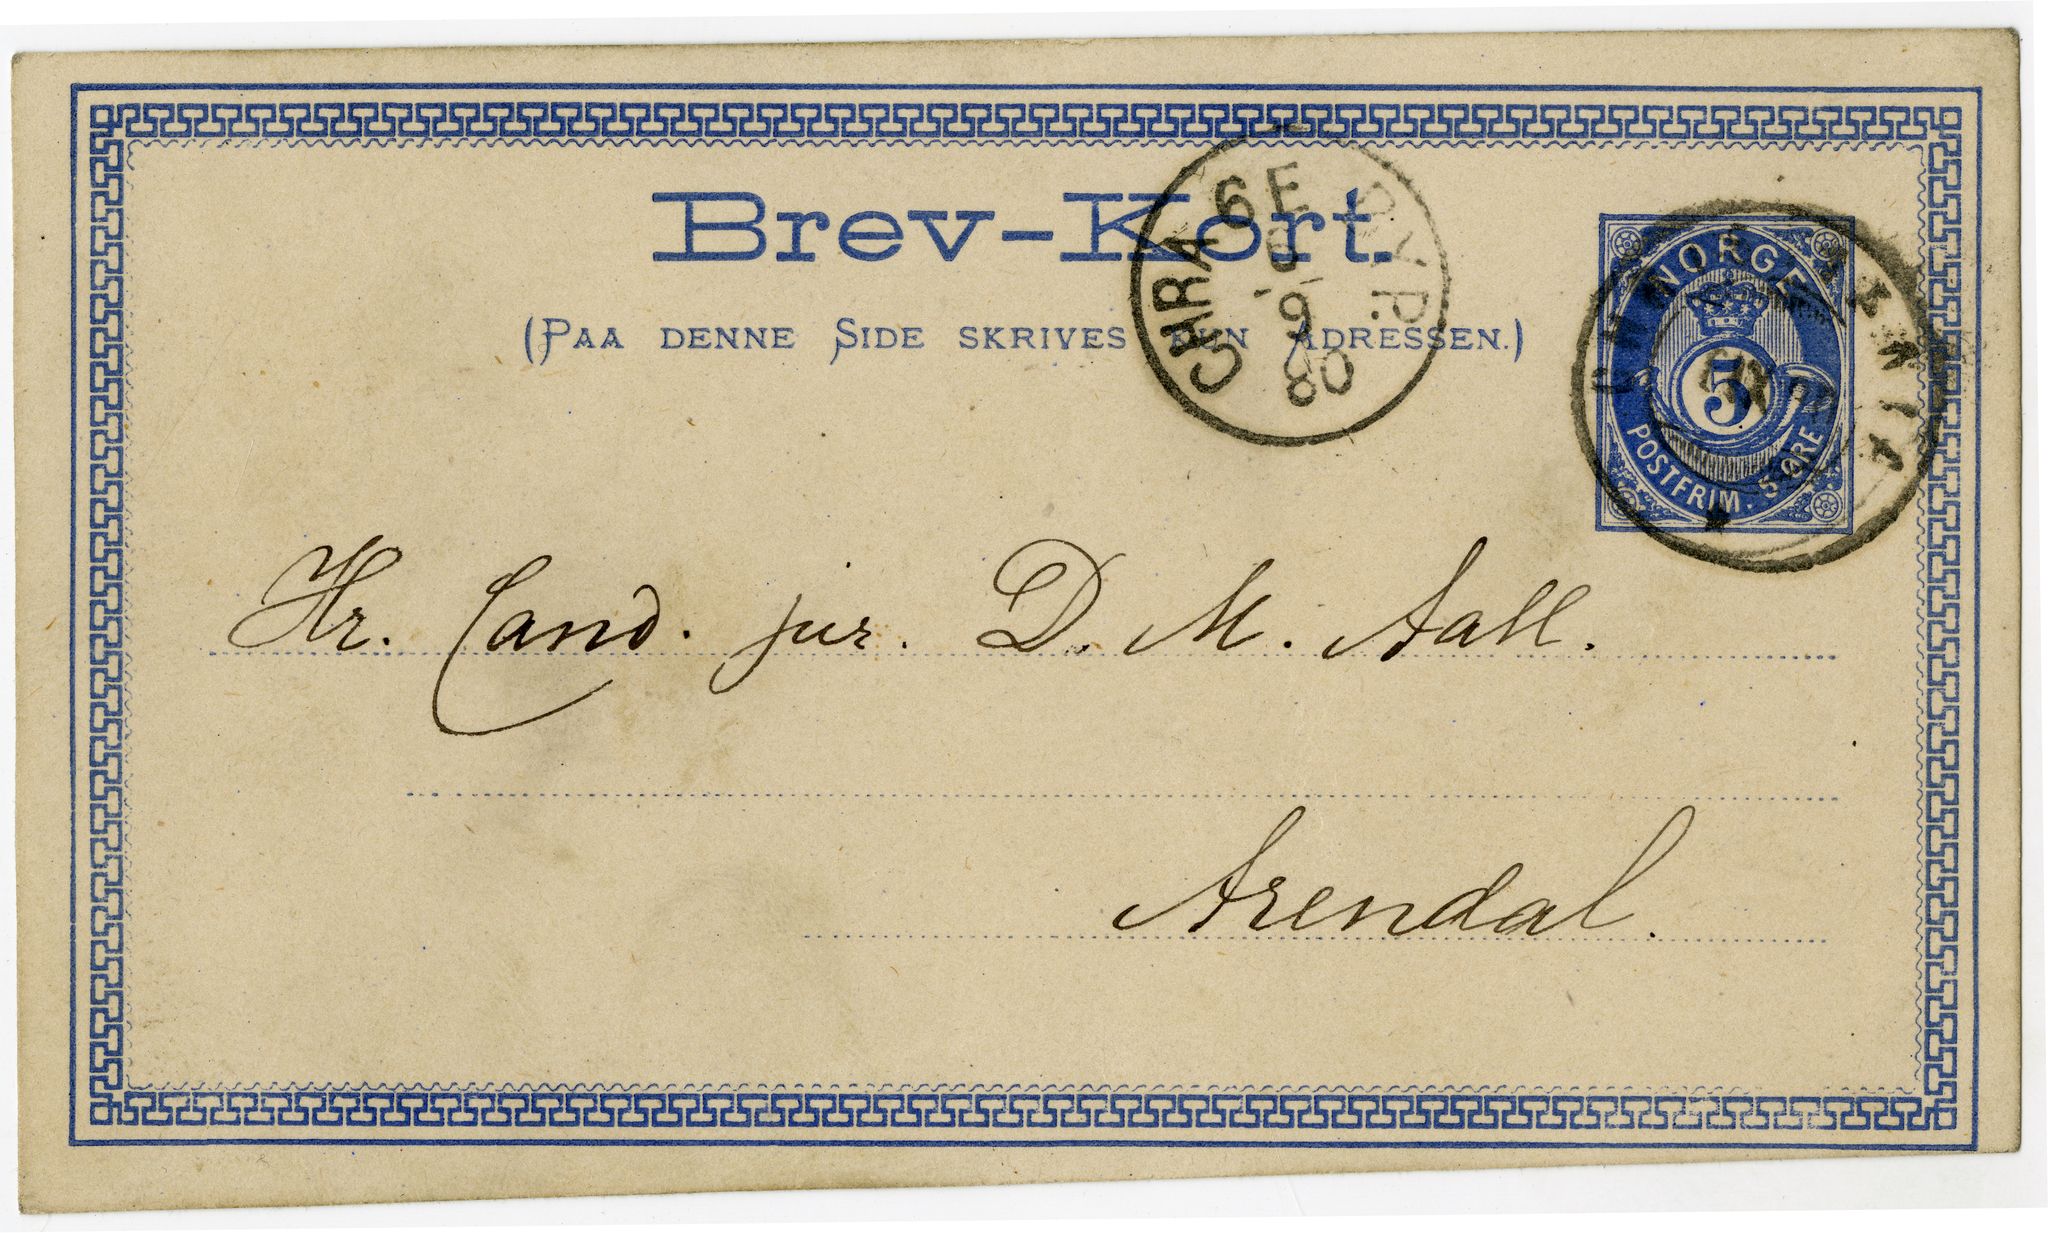 Brev-Kort.
(PAA DENNE SIDE SKRIVES KUN ADRESSEN.)
CHRA 6E BYP.
6
9
80
CHRISTIANIA
NORGE
5
POSTFRIM. 5 ØRE
Hr. Cand. jur. D. M. Aall.
Arendal.